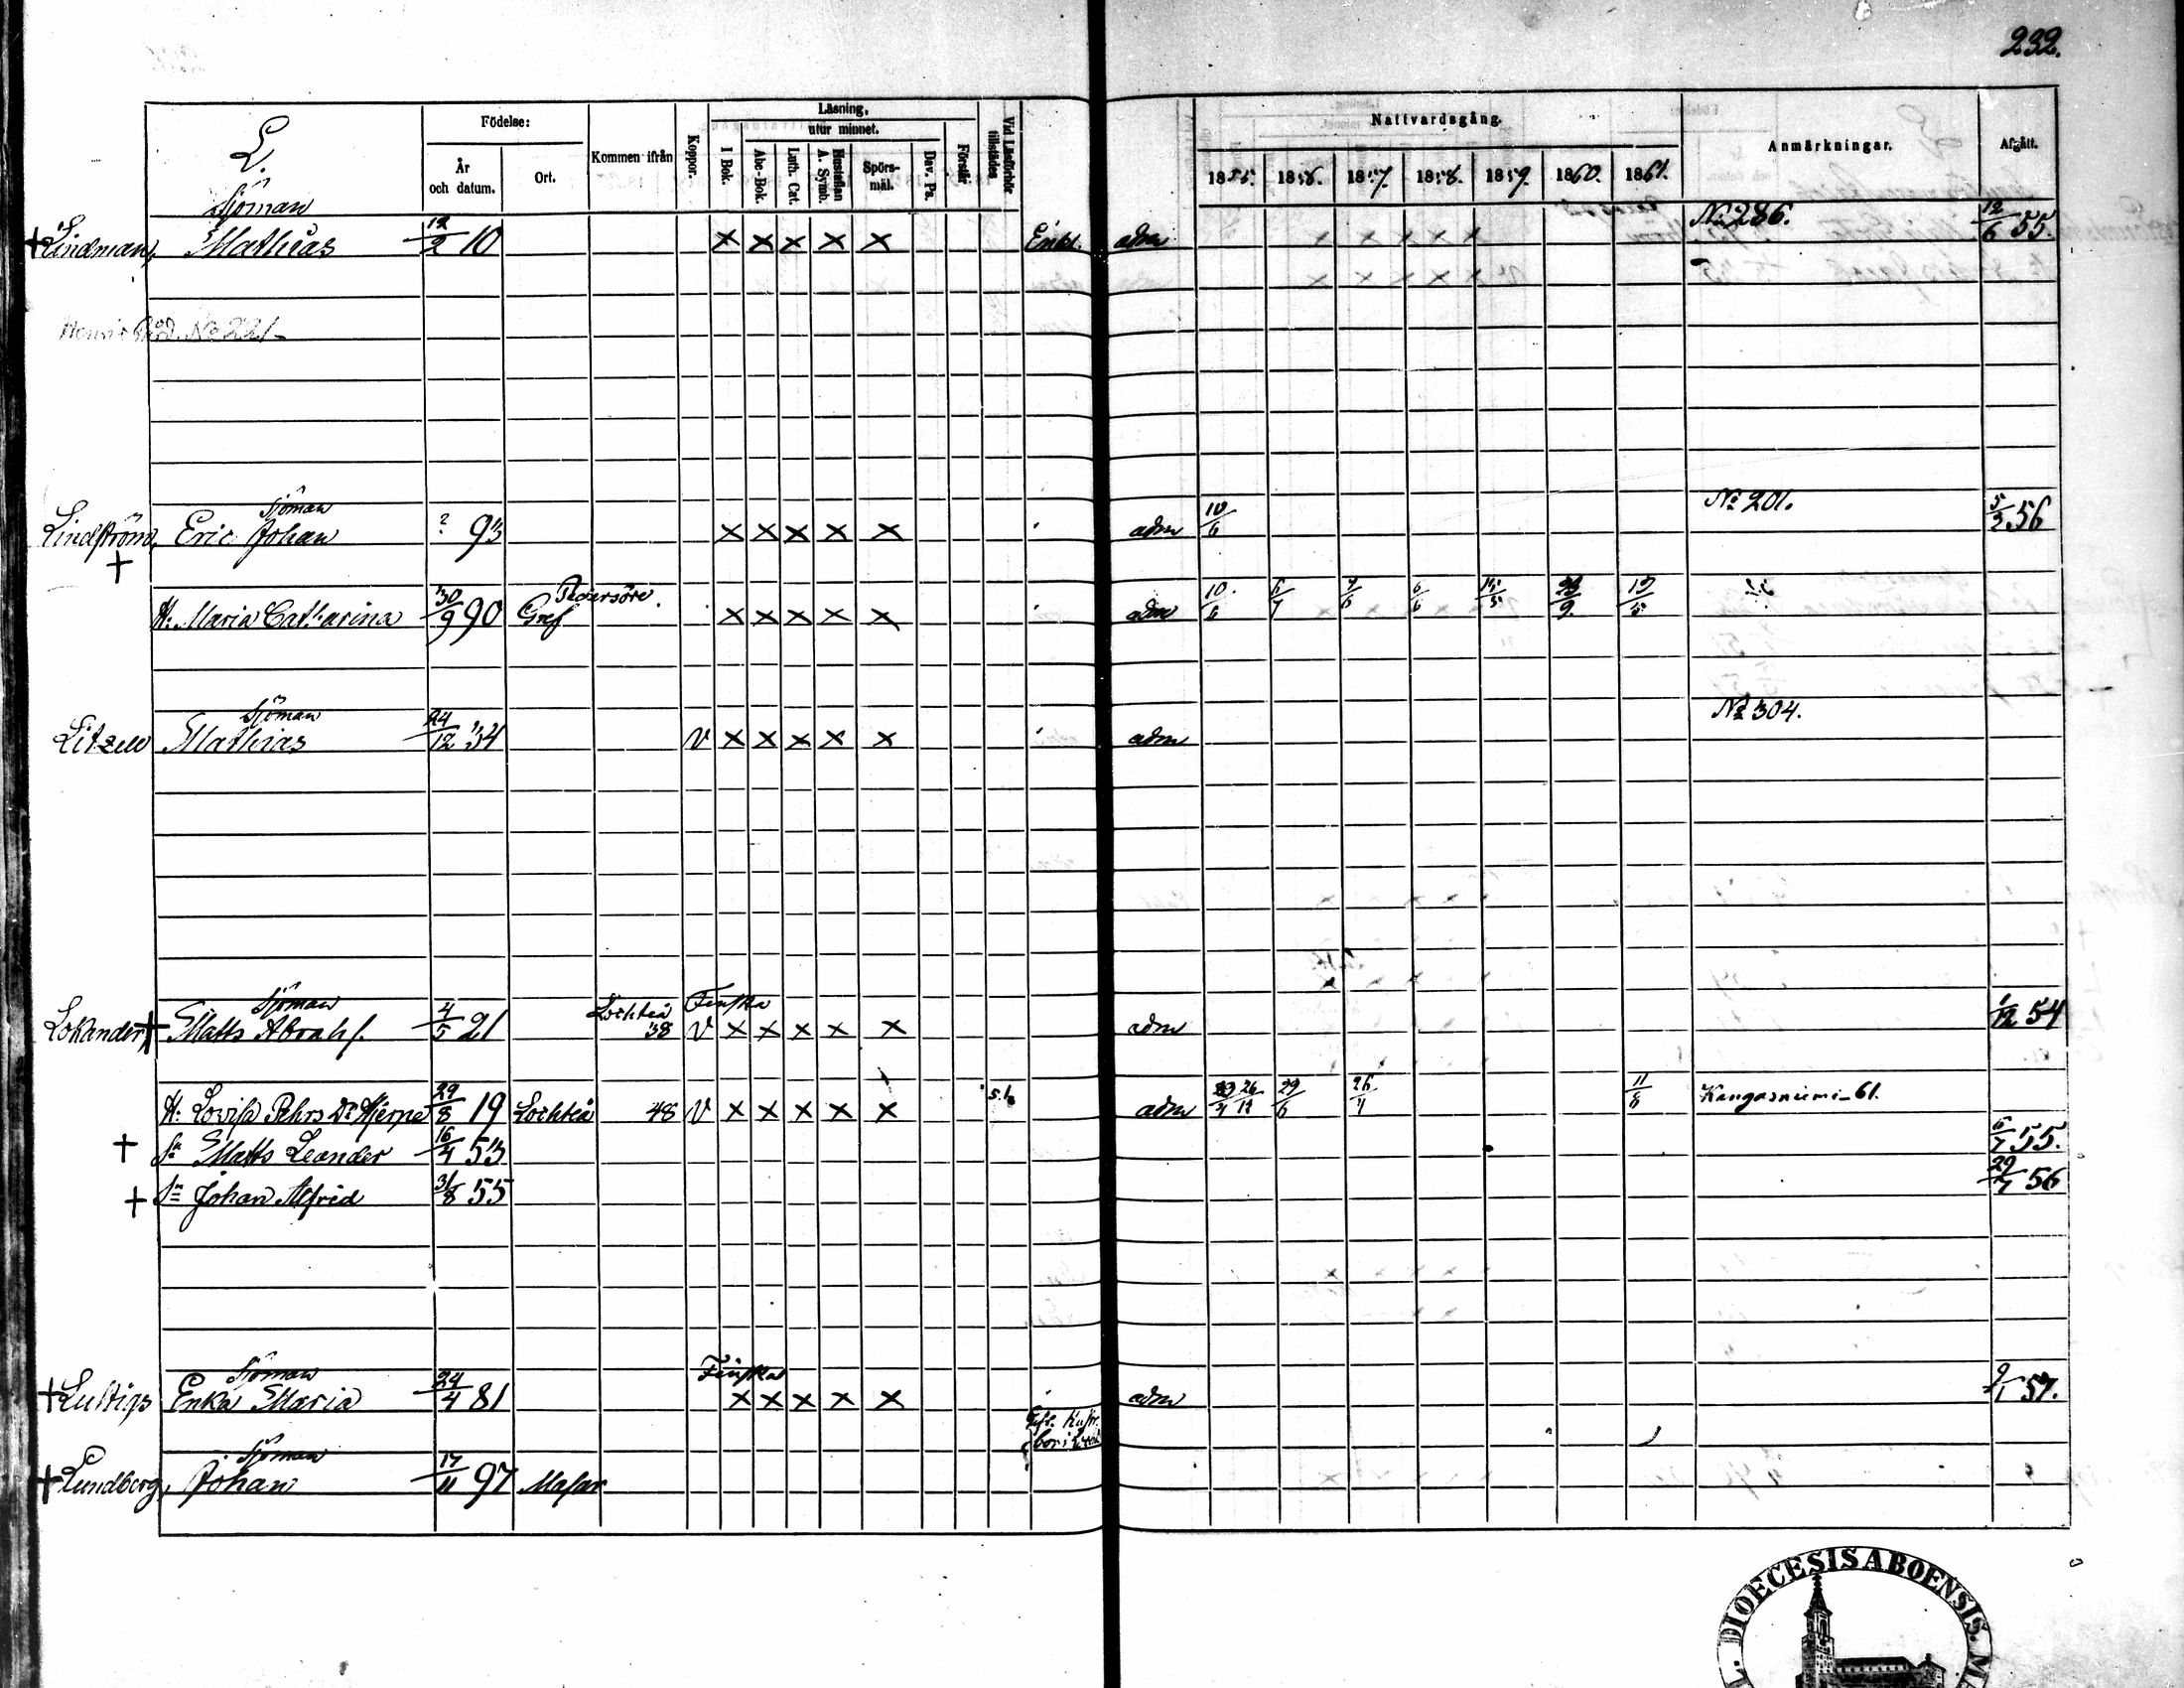 232.
L.
Födelse:
År och datum.
Ort.
Kommen ifrån
Koppor.
Läsning,
utur minnet.
I Bok.
Abc-Bok.
Luth. Cat.
Hustaflan A. Symb.
Spörsmål.
Dav. Ps.
Förstår
Vid Läsförhör tillstädes
Nattvardsgång.
1855. 1856. 1857. 1858. 1859. 1860. 1861.
Anmärkningar.
Afgått.
Sjöman
† Lindman, Mathias 12/2 10 × × × × × Enkl. adm No 286. 12/6 55.
No 221
Sjöman
Lindström, Eric Johan ? 93 × × × × × adm 10/6 No 201. 5/3 56
†
H: Maria Catharina 30/9 90 Pedersöre. × × × × × adm 10/6
Sjöman
Mathias 24/12 34 v × × × × × adm No 304.
Sjöman Lochteå Finska
Lokander † Matts Abrahf. 4/5 21 38 v × × × × × adm 1/12 54
H: Lovisa Pehrs Dr Hjerpe 29/8 19 Lochteå 48 v × × × × × adm 26/12 29/6 11/6 Kangasniemi-61.
† Sn Matts Leander 16/4 53 6/7 55.
† Sn Johan Alfrid 31/8 55 29/7 56
Sjöman Finska
† Lustigs Enka Maria 24/4 81 × × × × × adm 9/1 57.
Sjöman
† Lundberg, Johan 17/11 97
DIOECESIS ABOENSIS.